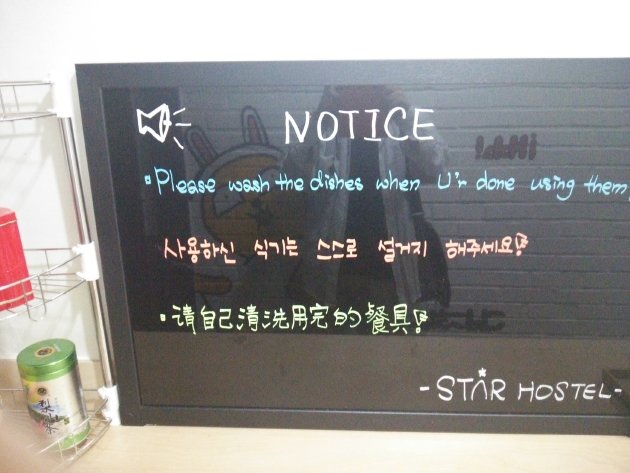 NOTICE
Please wash the dishes when U'r done using them
사용하신 식기는 스스로 설거지 해주세요!
请自己清洗用完的餐具!
- STAR HOSTEL -
梨山茶